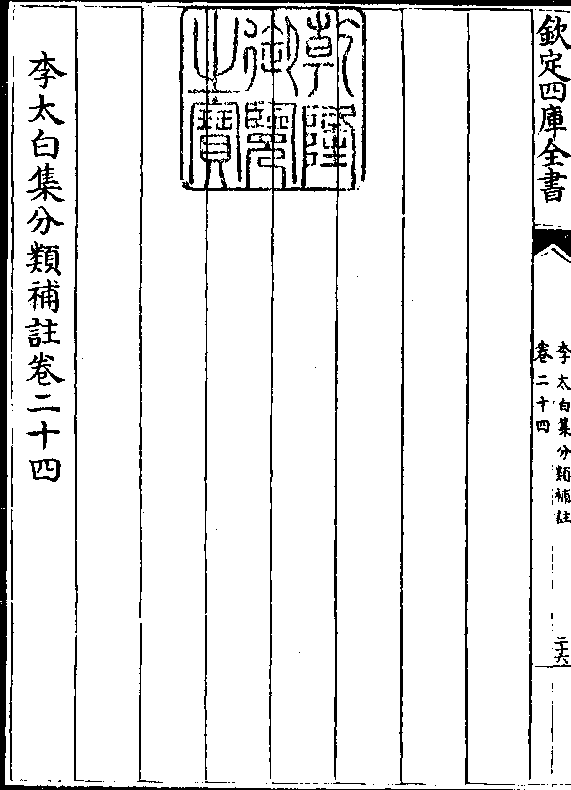 欽定四庫全書
李太白集分類補註
卷二十四
二十六
乾隆
御覽
之寶
李太白集分類補註卷二十四